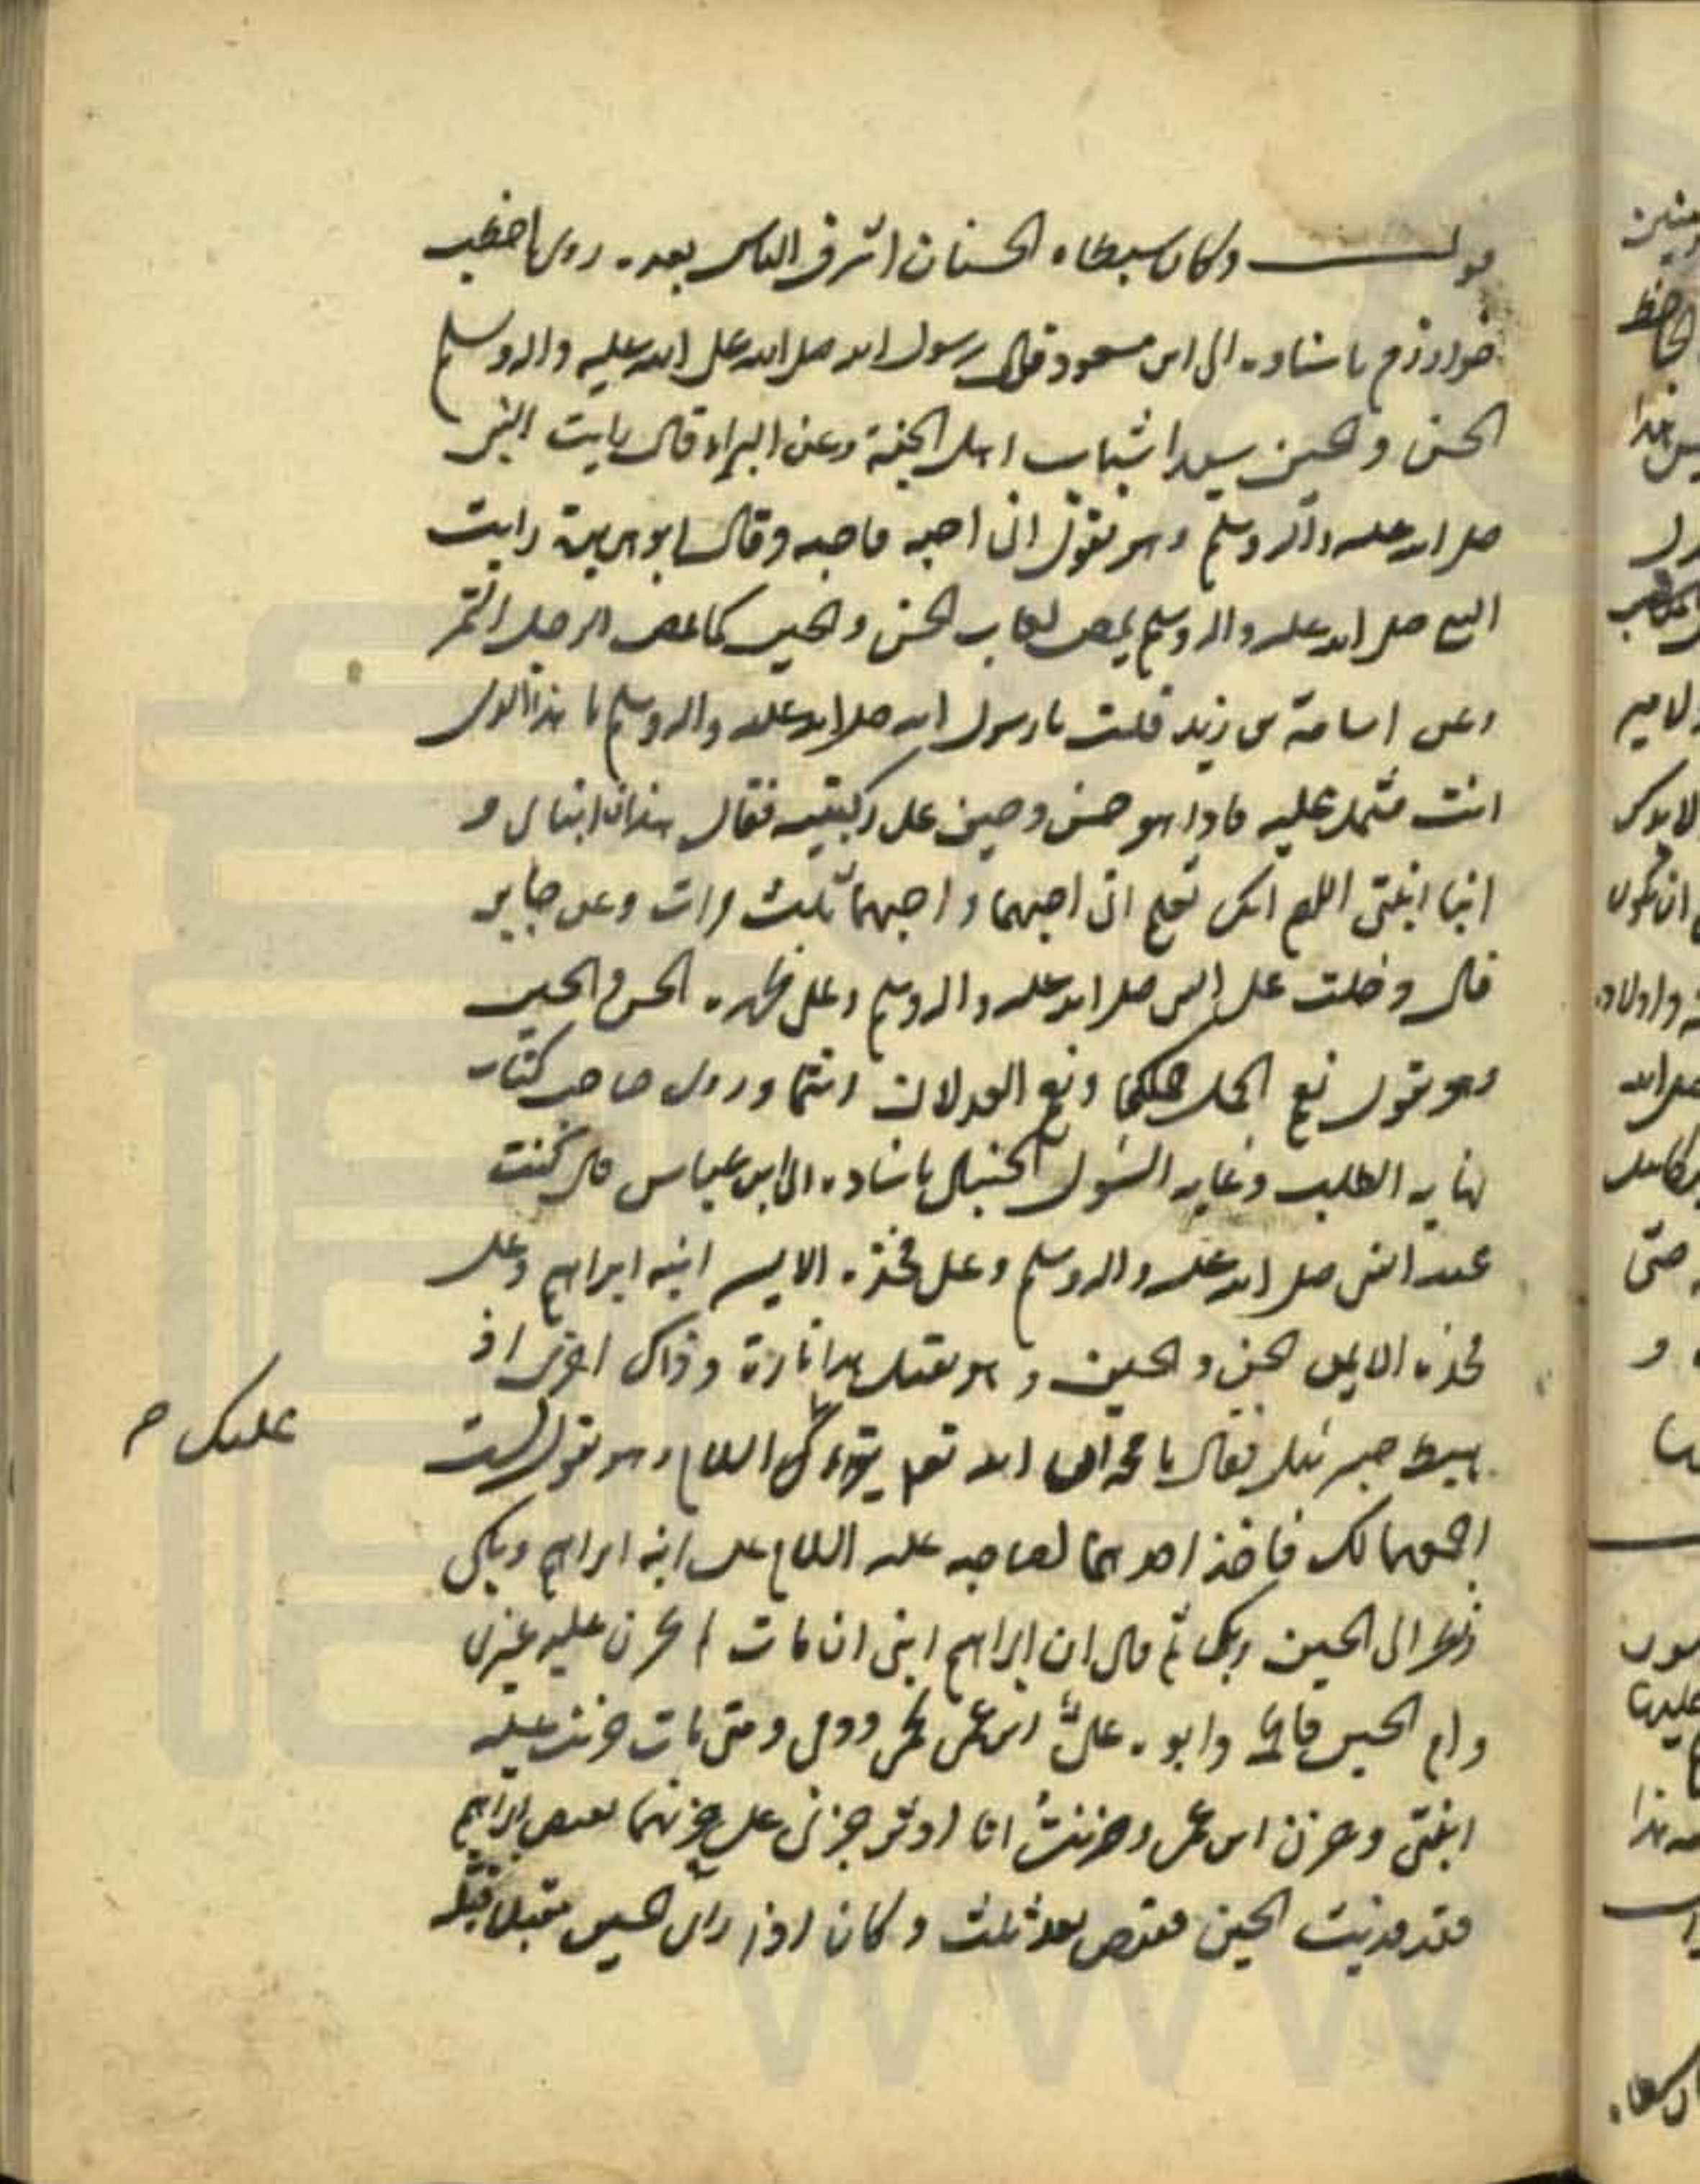 قوله وكان سبطاه الحسنان اشرف الناس بعده روى اخطب
خوارزم باسناده الى ابن مسعود قال رسول الله صلى الله على الله عليه واله وسلم
الحسن والحسين سيدا شباب اهل الجنة وعن البراء قال رايت النبى
صلى الله عليه واله وسلم وهو يقول انى احبه فاحبه وقال ابو هريرة رايت
النبى صلى الله عليه واله وسلم يمص لعاب الحسن والحسين كما يمص الرجل التمر
وعن اسامة بن زيد قلت يا رسول الله صلى الله عليه واله وسلم ما هذا الذى
انت مشتمل عليه فاذا هو حسن وحسين على ركبتيه فقال هذان ابناى و
ابنا ابنتى اللهم انك تعلم انى احبهما واحبهما ثلث مرات وعن جابر
قال دخلت على النبى صلى الله عليه واله وسلم وعلى ظهره الحسن والحسين
وهو يقول نعم الجمل جملكما ونعم العدلان انتما وروى صاحب كتاب
نهايه الطلب وغايه السؤل الحنبلى باسناده الى ابن عباس قال كنت
عند النبى صلى الله عليه واله وسلم وعلى فخذه الايسر ابنه ابراهيم وعلى
فخذه الايمن الحسين وهو يقبل هذا تارة وذاك اخرى اذ
هبط جبرئيل فقال يا محمد ان الله تعالى يقرء السلام وهو يقول لست
عليك ح
اجمعهما لك فاخذ احدهما لصاحبه عليه السلام على ابنه ابراهيم وبكى
ونظر الى الحسين وبكى ثم قال ان ابراهيم ابنى ان مات لم يحزن عليه غيرى
وام الحسين فاطمة وابوه على ابن عمى لحمى ودمى ومتى مات حزنت عليه
ابنتى وحزن ابن عمى وحزنت انا اوثر حزنى على حزنهما يقبض ابراهيم
فقد فديت الحسين فقبض بعد ثلث وكان اذا راى الحسين مقبلا قبله